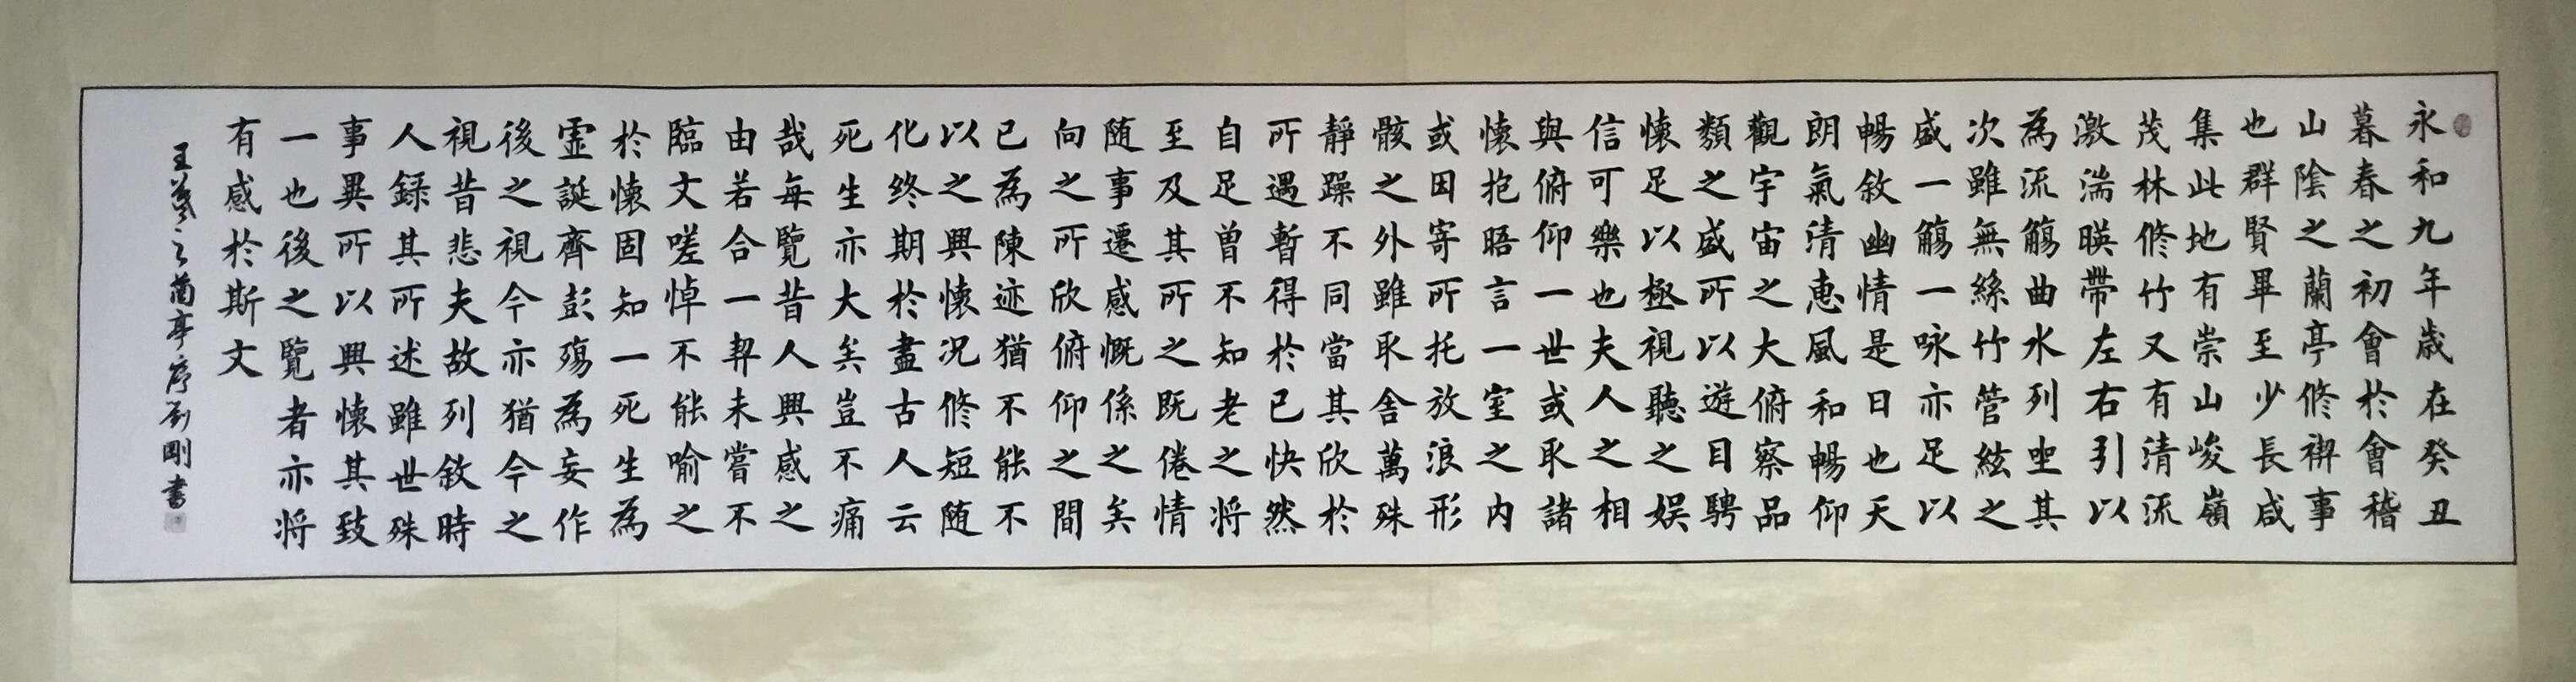 永和九年歲在癸丑
暮春之初會於會稽
山陰之蘭亭修禊事
也群賢畢至少長咸
集此地有崇山峻嶺
茂林修竹又有清流
激湍暎帶左右引以
為流觴曲水列坐其
次雖無絲竹管絃之
盛一觴一咏亦足以
暢敘幽情是日也天
朗氣清惠風和暢仰
觀宇宙之大俯察品
類之盛所以遊目騁
懷足以極視聽之娱
信可樂也夫人之相
與俯仰一世或取諸
懷抱晤言一室之内
或因寄所托放浪形
骸之外雖取舍萬殊
靜躁不同當其欣於
所遇暫得於己快然
自足曾不知老之将
至及其所之既倦情
随事遷感慨係之矣
向之所欣俯仰之間
已為陳迹猶不能不
以之興懷况修短随
化终期於盡古人云
死生亦大矣豈不痛
哉每覽昔人興感之
由若合一契未嘗不
臨文嗟悼不能喻之
於懷固知一死生為
虚誕齊彭殤為妄作
後之視今亦猶今之
視昔悲夫故列敘時
人録其所述雖世殊
事異所以興懷其致
一也後之覽者亦将
有感於斯文
王羲之蘭亭序劉剛書